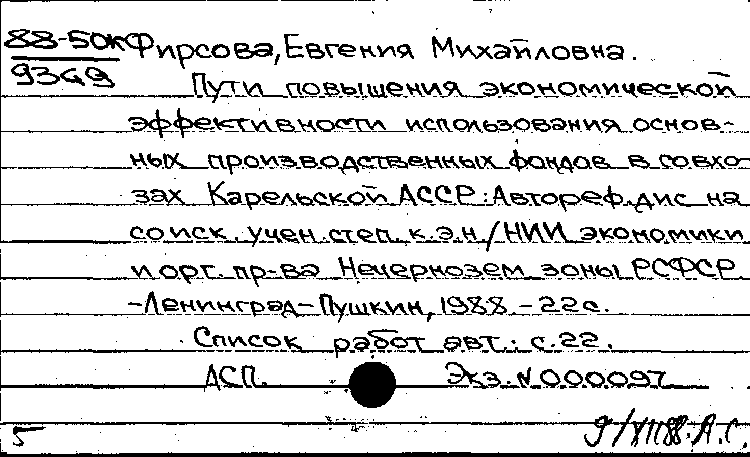 88-50к Фирсова, Евгения Михайловна.
9349
Пути повышения экономической
эффективности использования основ-
ных производственных фондов в совхо
зах Карельской АССР: Автореф. дис на
соиск. учен. степ. к.э.н / НИИ экономики
и орг. пр-ва Нечернозем. зоны РСФСР
-Ленинград-Пушкин, 1988.-22с.
Список работ авт.: с.22.
АСП. Экз. N 000097
9/XII88. А.С.
5